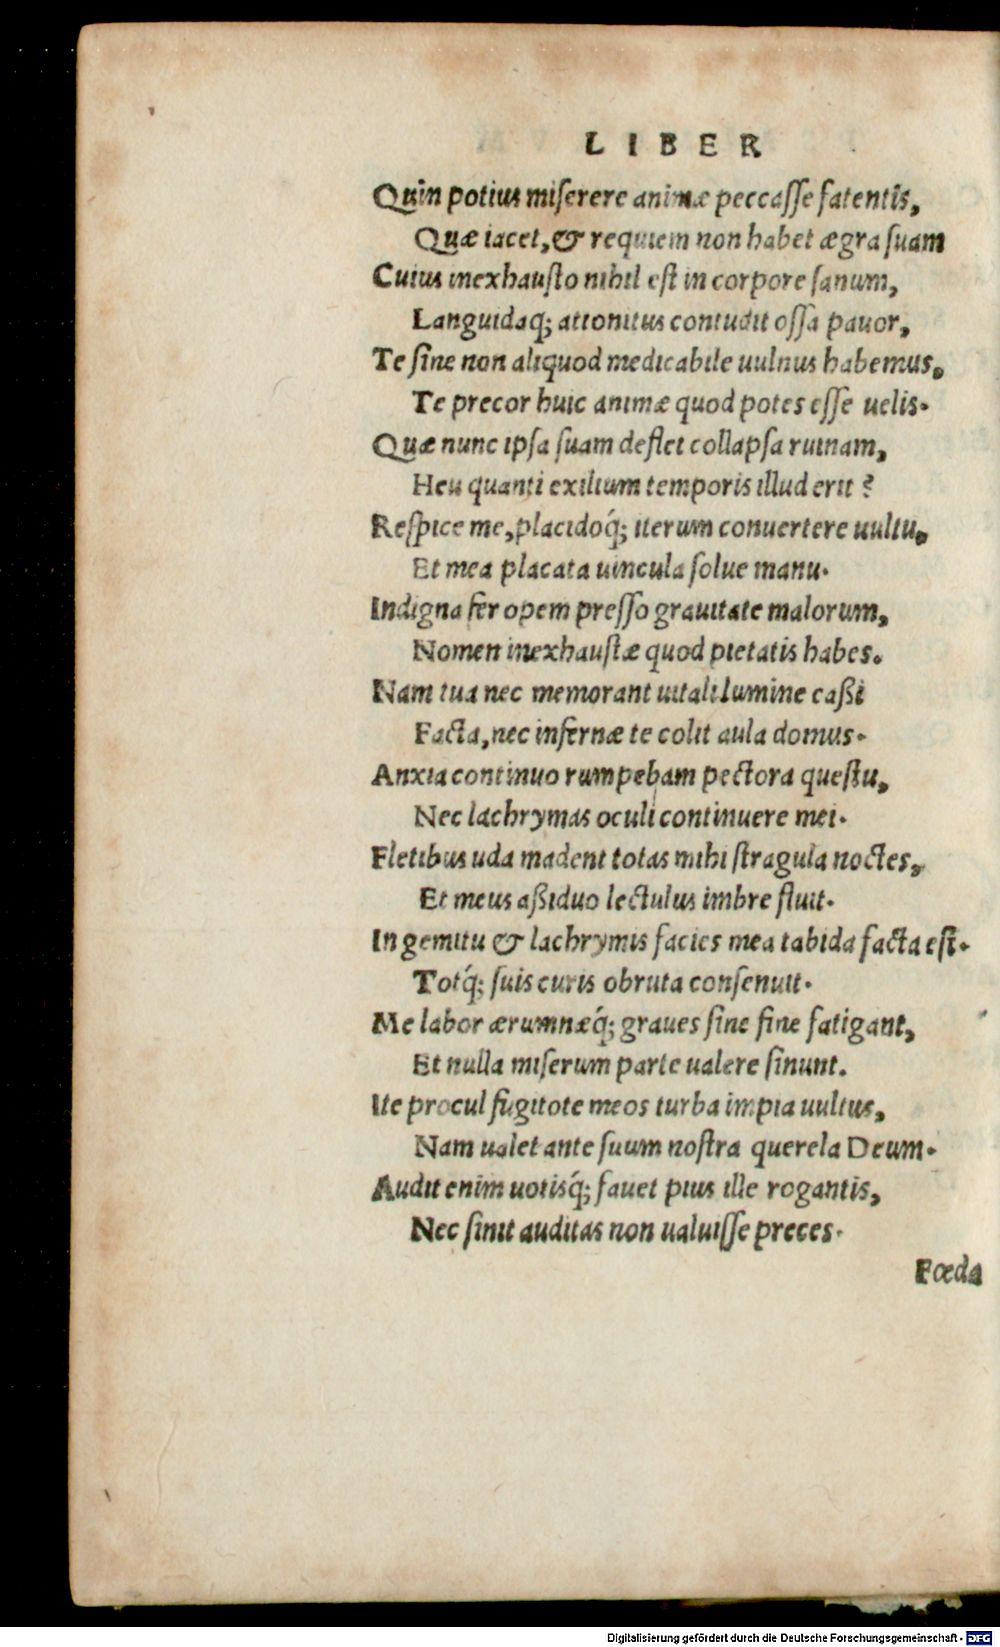 LIBER
Quin potius miserere animæ peccasse fatentis,
Quæ iacet, & requiem non habet ægra suam
Cuius inexhausto nihil est in corpore sanum,
Languidaq́; attonitus contudit ossa pauor,
Te sine non aliquod medicabile uulnus habemus.
Te precor huic animæ quod potes esse uelis.
Quæ nunc ipsa suam deflet collapsa ruinam,
Heu quanti exilium temporis illud erit?
Respice me, placidoq́; iterum conuertere uultu.
Et mea placata uincula solue manu.
Indigna fer opem presso grauitate malorum,
Nomen inexhaustæ quod pietatis habes.
Nam tua nec memorant uitali lumine caßi
Facta, nec infernæ te colit aula domus.
Anxia continuo rumpebam pectora questu,
Nec lachrymas oculi continuere mei.
Fletibus uda madent totas mihi stragula noctes,
Et meus aßiduo lectulus imbre fluit.
In gemitu & lachrymis facies mea tabida facta est.
Totq́; suis curis obruta consenuit.
Me labor ærumnæq́; graues sine fine fatigant,
Et nulla miserum parte ualere sinunt.
Ite procul fugitote meos turba impia uultus,
Nam ualet ante suum nostra querela Deum.
Audit enim uotisq́; fauet pius ille rogantis,
Nec sinit auditas non ualuisse preces.
Fœda
Digitalisierung gefördert durch die Deutsche Forschungsgemeinschaft - DFG